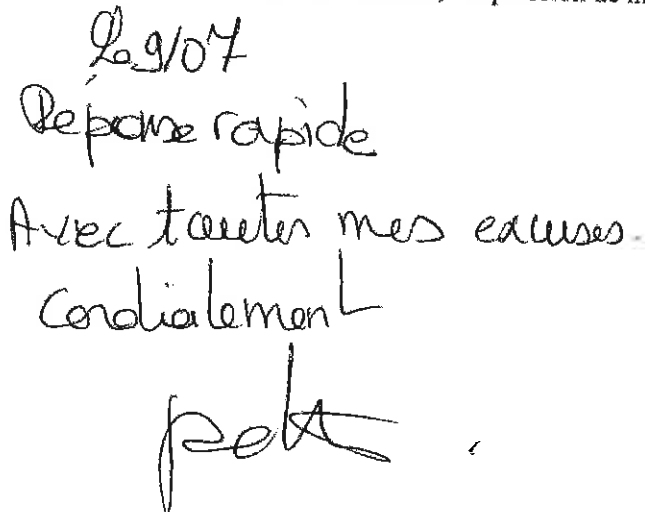 Le 9/07
Réponse rapide
Avec toutes mes excuses.
Cordialement